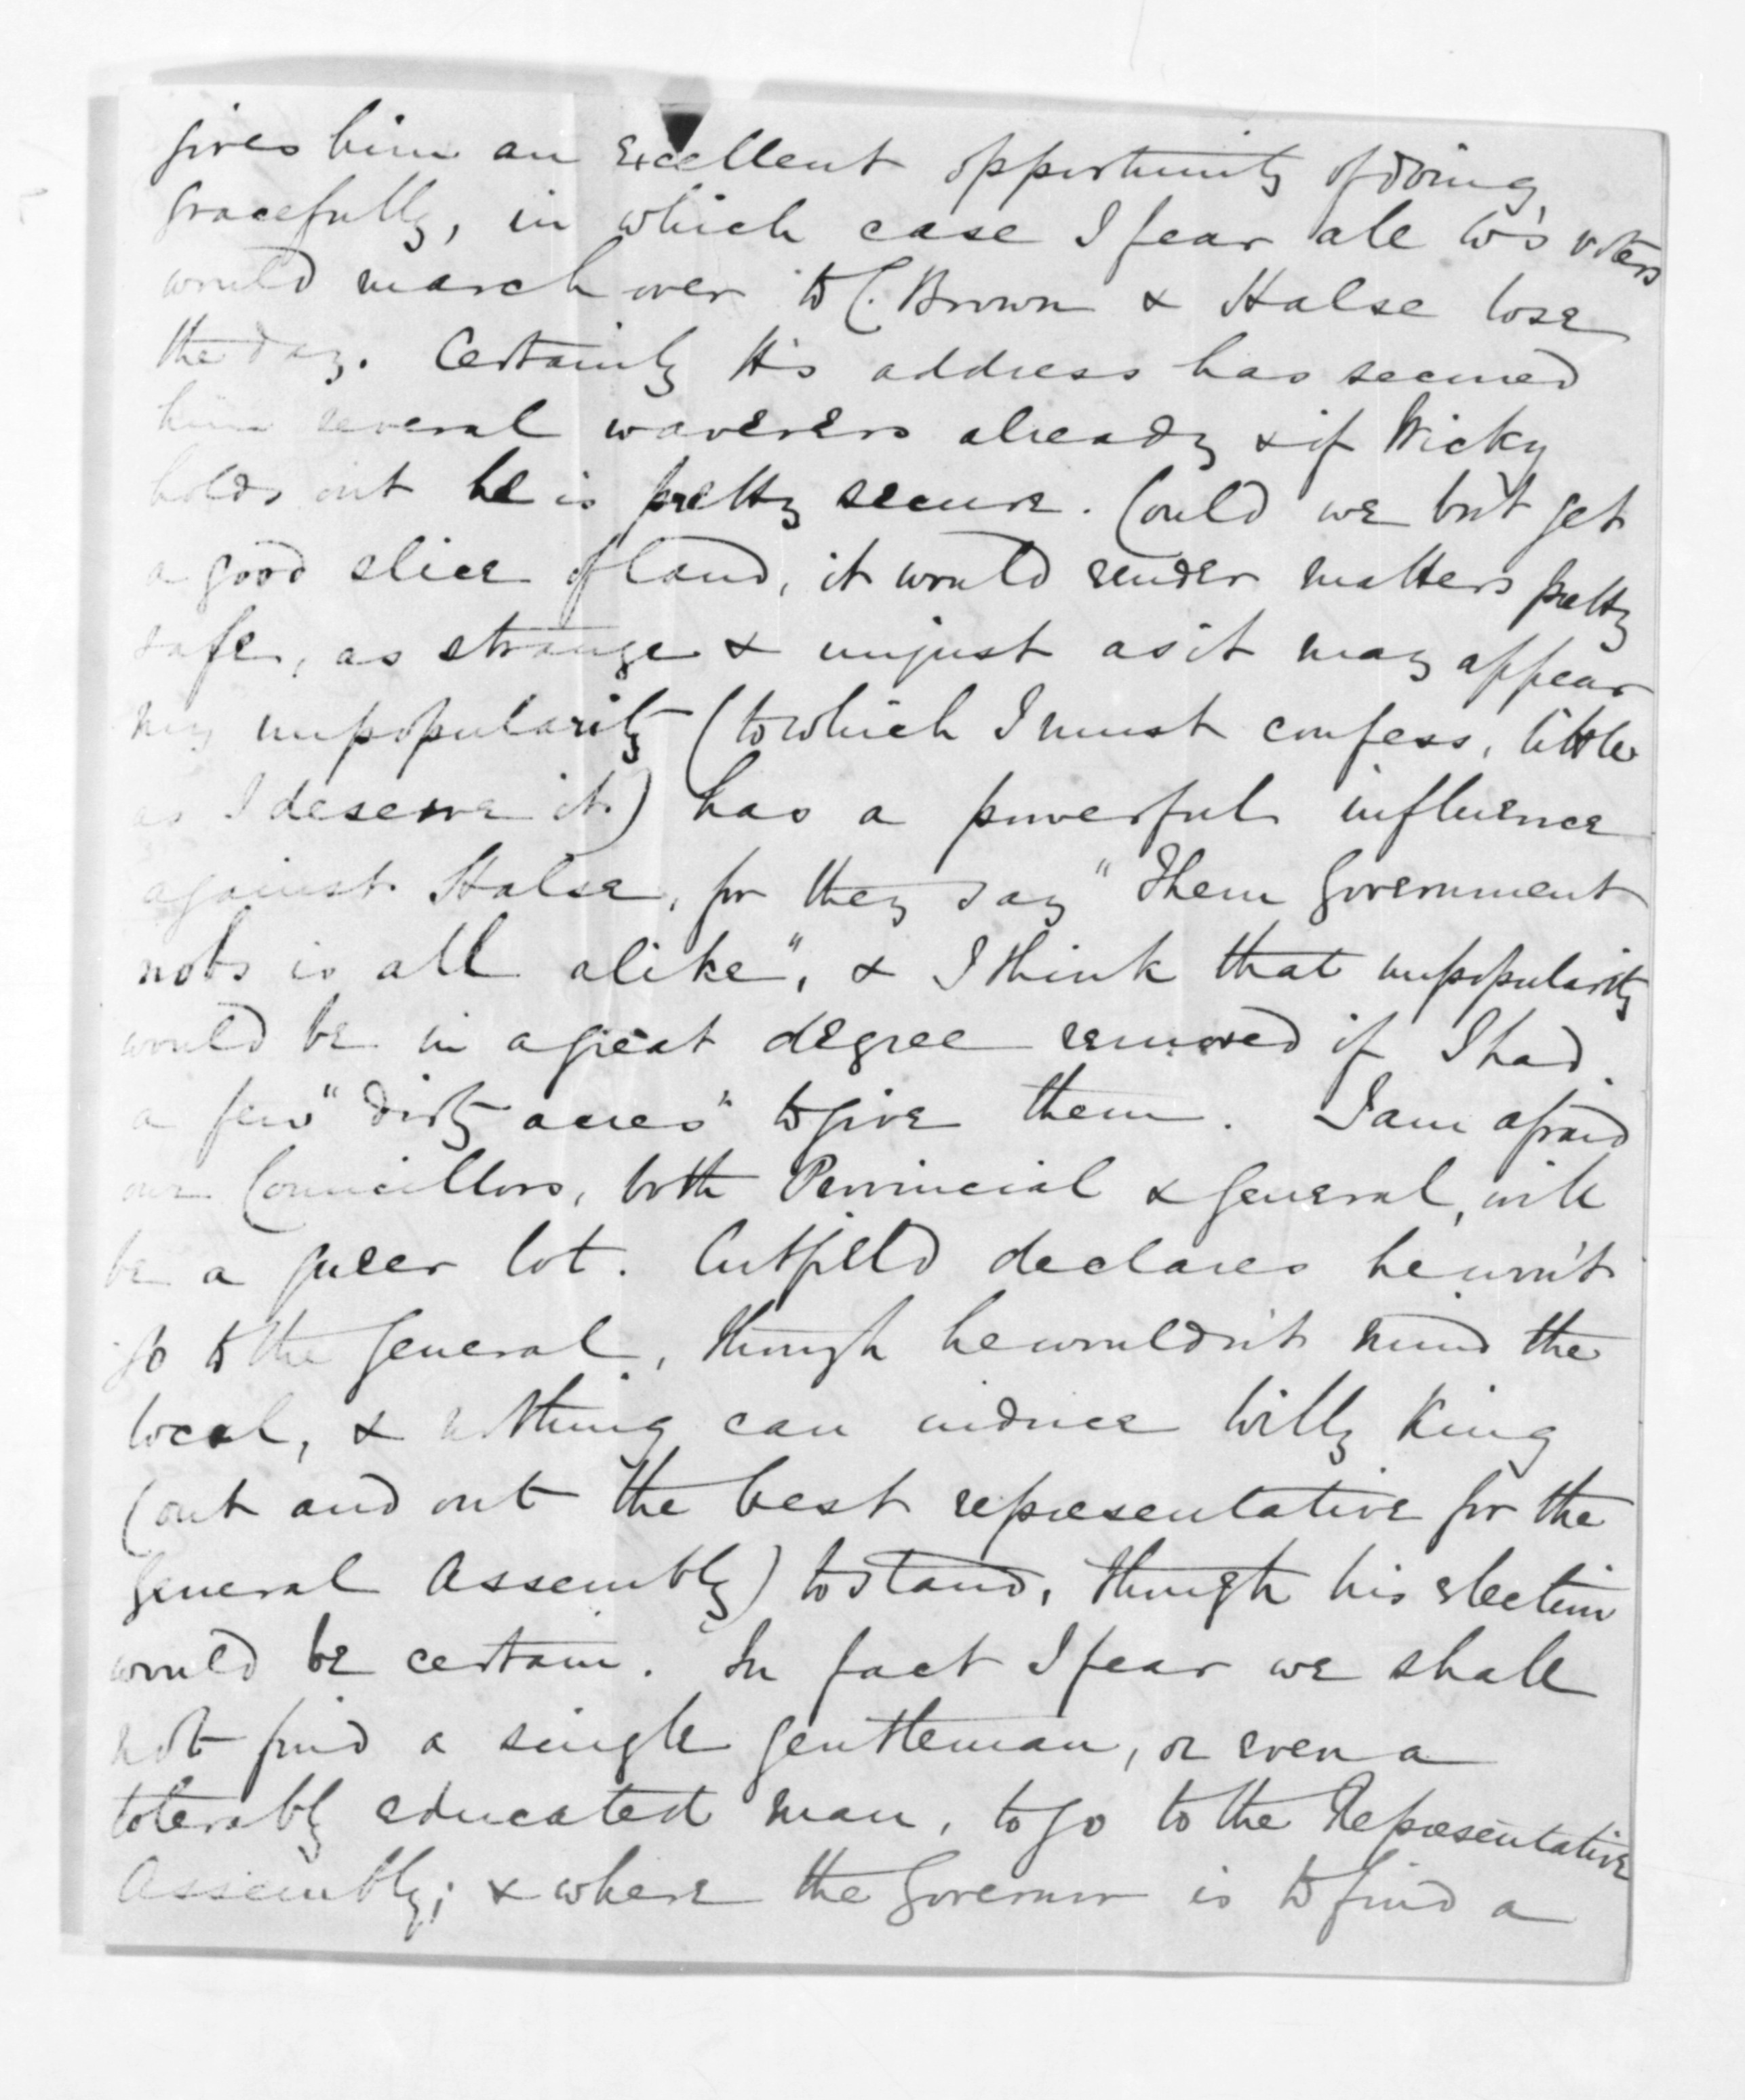 gives him an excellent opportunity of doing
gracefully, in which case I fear all W's voters
would march over to C. Brown & Halse lose
the day. Certainly H's address has secured
him several waverers already & if Wicky
holds out he is pretty secure. Could we but get
a good slice of land, it would render matters pretty
safe, as strange & unjust as it may appear
my unpopularity (to which I must confess, little
as I deserve it) has a powerful influence
against Halse, for they say "Them Government
nobs is all alike", & I think that unpopularity
would be in a great degree removed if I had
a few "dirty acres" to give them. I am afraid
our Councillors, both Provincial & General, will
be a queer lot. Cutfield declares he won't
go to the General, though he wouldn't mind the
local, & nothing can induce Willy King
(out and out the best representative for the
General Assembly) to stand, though his election
would be certain. In fact I fear we shall
not find a single gentleman, or even a
tolerably educated man, to go to the Representative
Assembly; & where the Governor is to find a